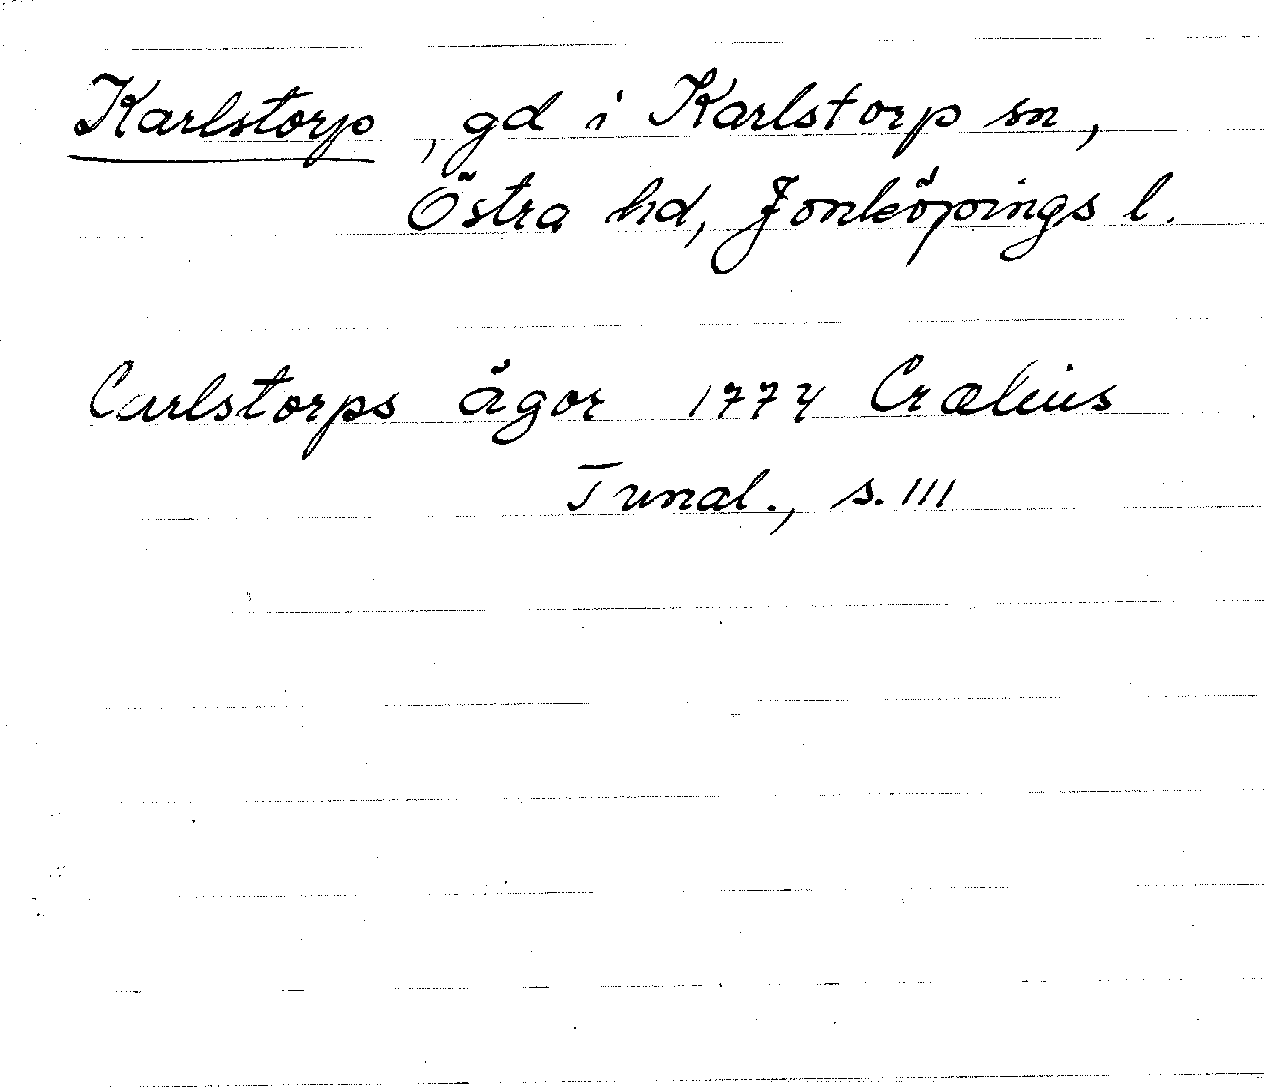 Karlstorp, gd i Karlstorp sn,
Östra hd, Jonköpings l.
Carlstorps ägor 1774 Crælius
Tunal., s. 111